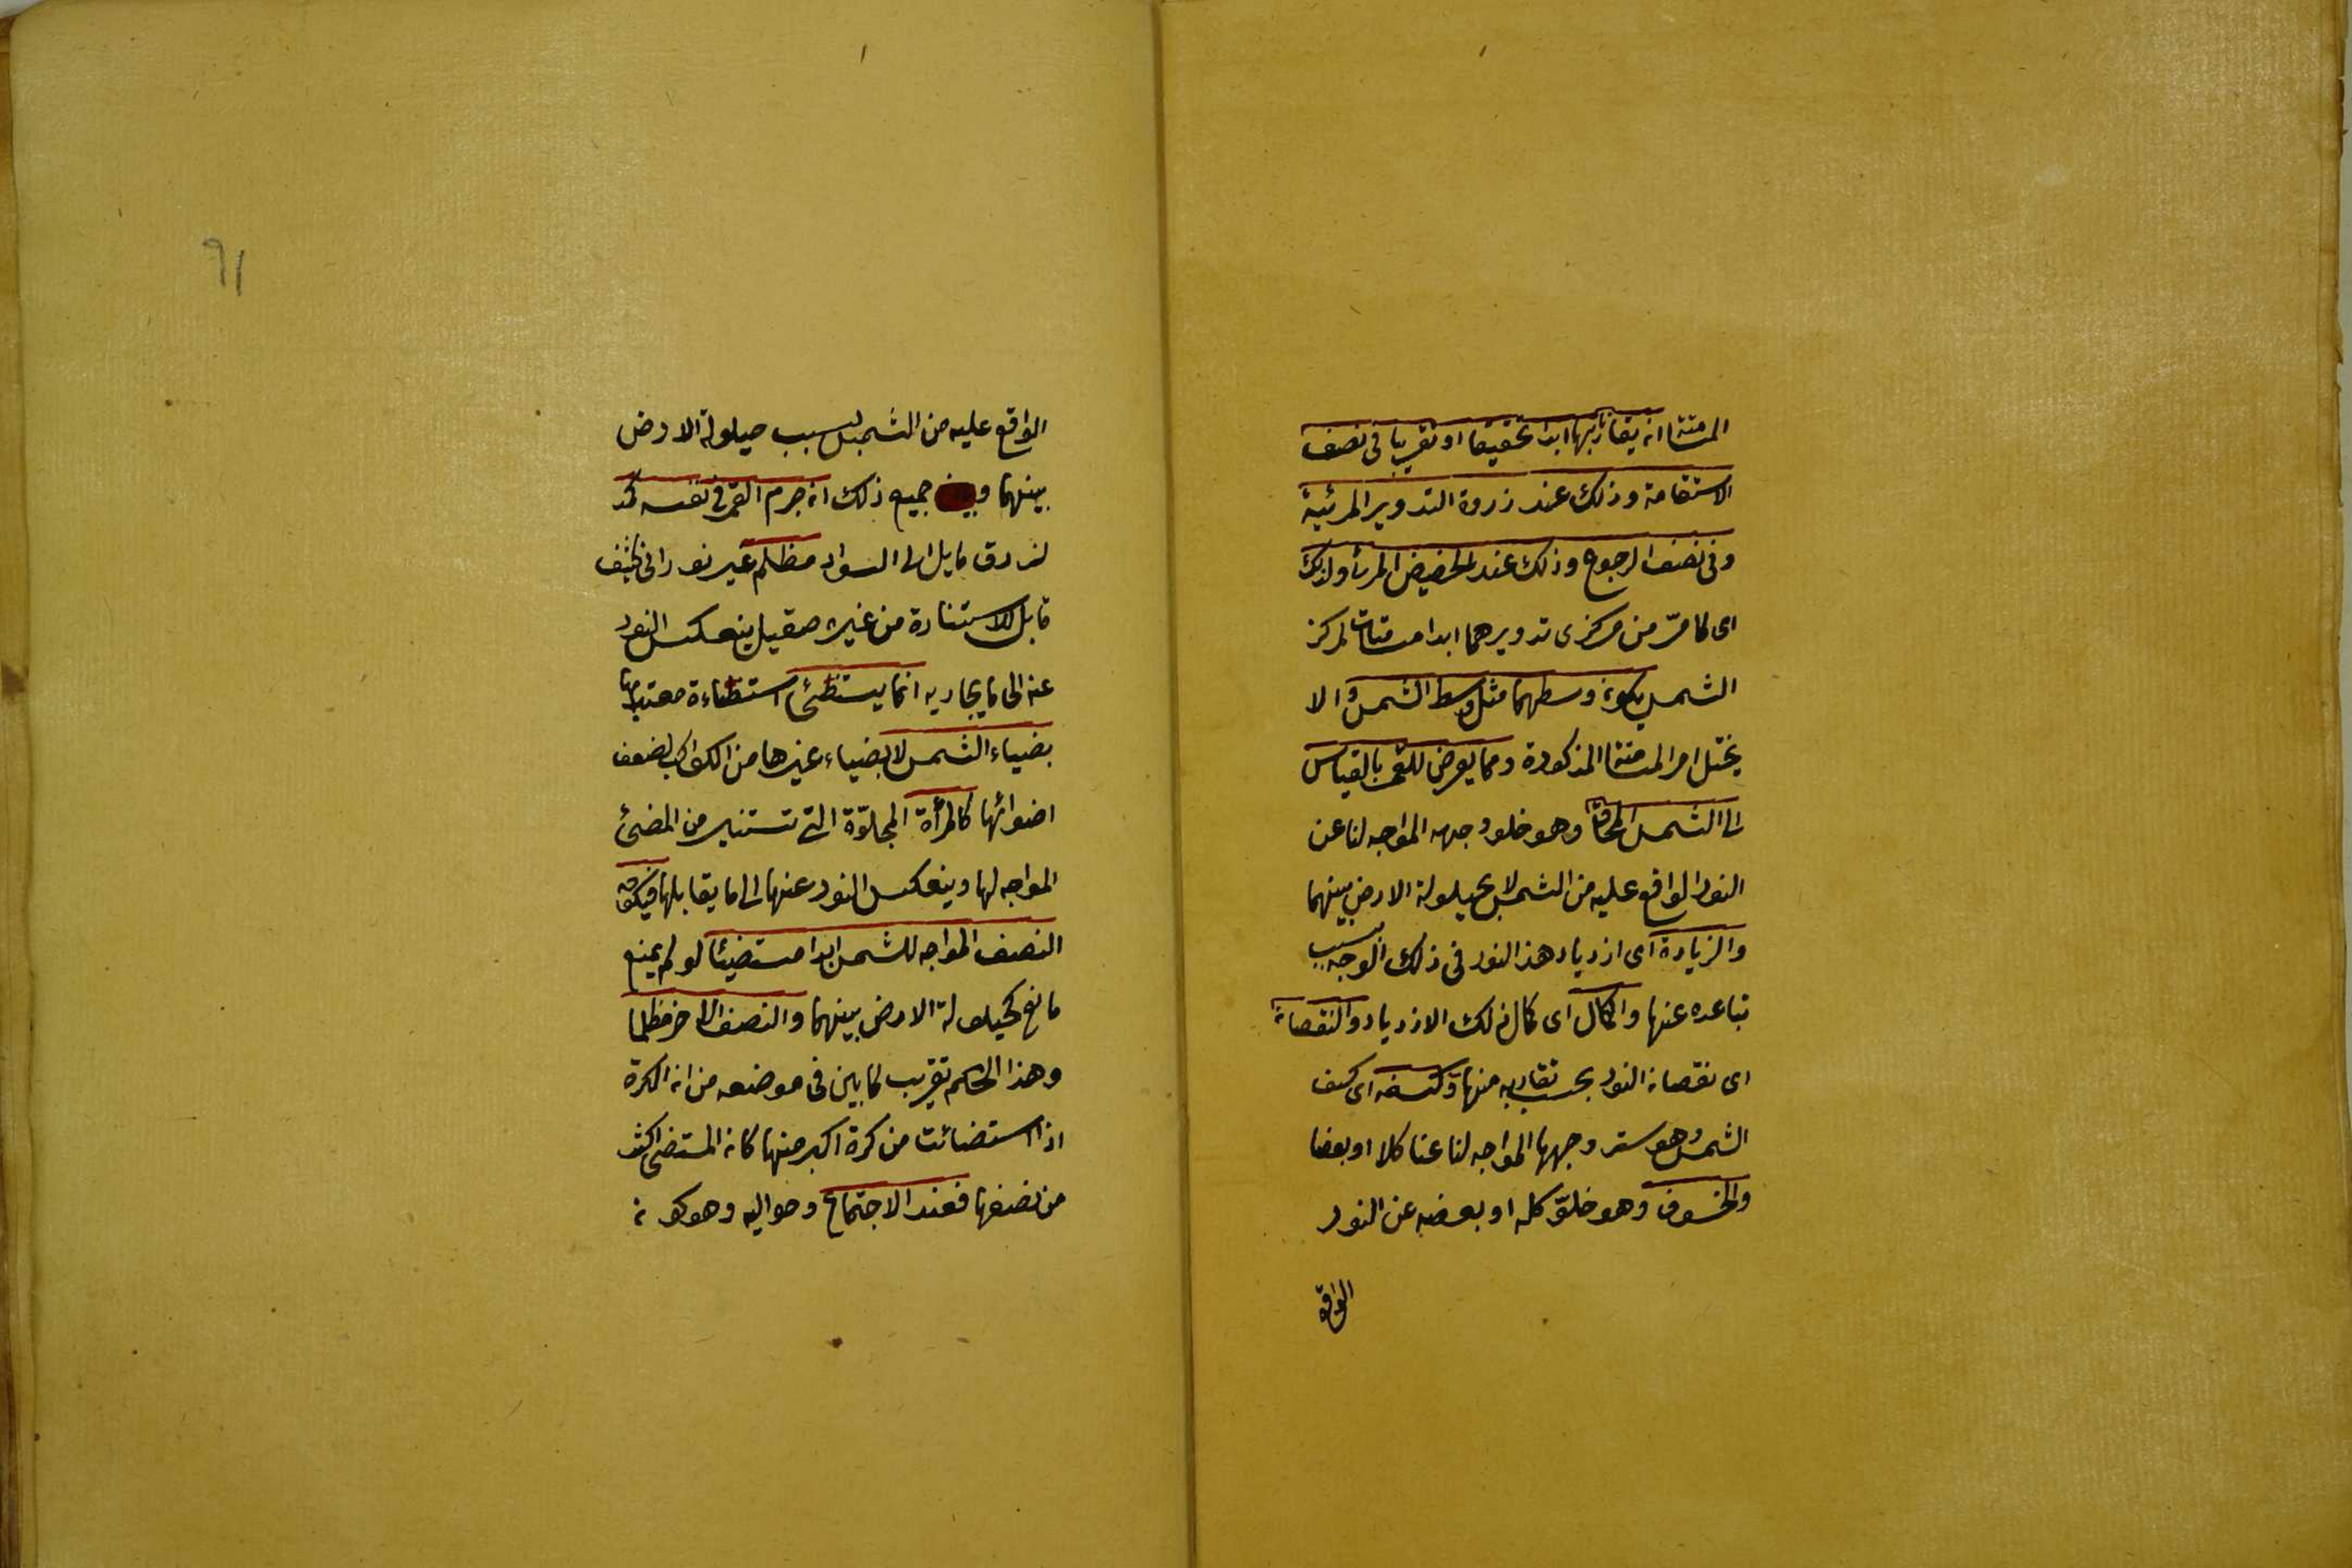 المسامتة انه يقارنهما ابدا تحقيقا او تقريبا فى نصف
الاستقامة وذلك عند زروة التدوير المرئية
وفى نصف الرجوع وذلك عند الحضيض المرئى ولذلك
اى لما مرّ من مركزى تدويرهما ابدا مسامتان لمركز
الشمس يكون وسطهما مثل وسط الشمس والا
يختل امر المسامتة المذكورة ومما يعرض للقمر بالقياس
الى الشمس المحاق وهو خلو وجهه المواجه لنا عن
النور الواقع عليه من الشمس لا بحيلولة الارض بينهما
والزيادة اى ازدياد هذا النور فى ذلك الوجه بسبب
تباعده عنها والكمال اى كمال ذلك الازدياد والنقصان
اى نقصان النور بحسب تقاربه منها وكسفه اى كسف
الشمس وهو ستر وجهها المواجه لنا عنا كلا او بعضا
والخسوف وهو خلوّ كله او بعضه عن النور
الواقع
٩١
الواقع عليه من الشمس بسبب حيلولة الارض
بينهما و جميع ذلك ان جرم القمر فى نفسه كمد
ازرق مايل الى السواد مظلم غير نورانى كثيف
قابل للاستنارة من غيره صقيل ينعكس النور
عنه الى ما يحاذيه انما يستظئ استظاءة معتدا بها
بضياء الشمس لا بضياء غيرها من الكواكب لضعف
اضوائها كالمرأة المجلوّة التى تستنير من المضئ
المواجه لها وينعكس النور عنها الى ما يقابلها فيكون
النصف المواجه للشمس ابدا مستضيئا لو لم يمنع
مانع كحيلولة الارض بينهما والنصف الاخر مظلما
وهذا الحكم تقريب لما بين فى موضعه من ان الكرة
اذا استضائت من كرة اكبر منها كان المستضى اكثر
من نصفها فعند الاجتماع وحواليه وهو كونه